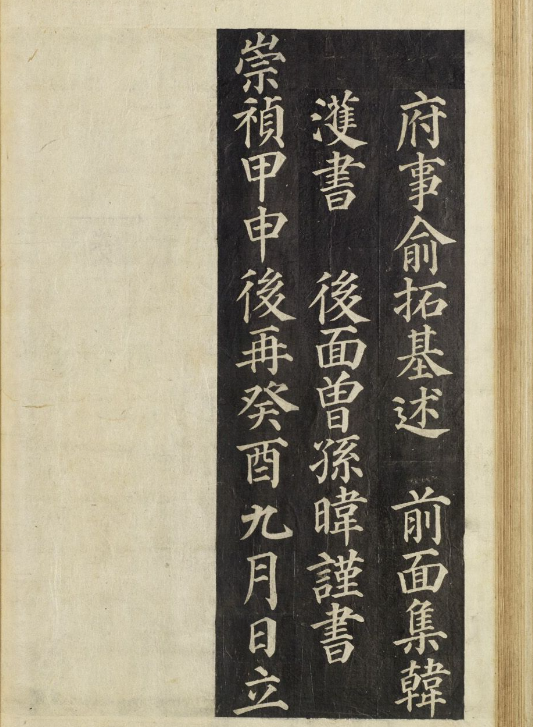 府事俞拓基述 前面集韓
濩書 後面曾孫暐謹書
崇禎甲申後再癸酉九月日立